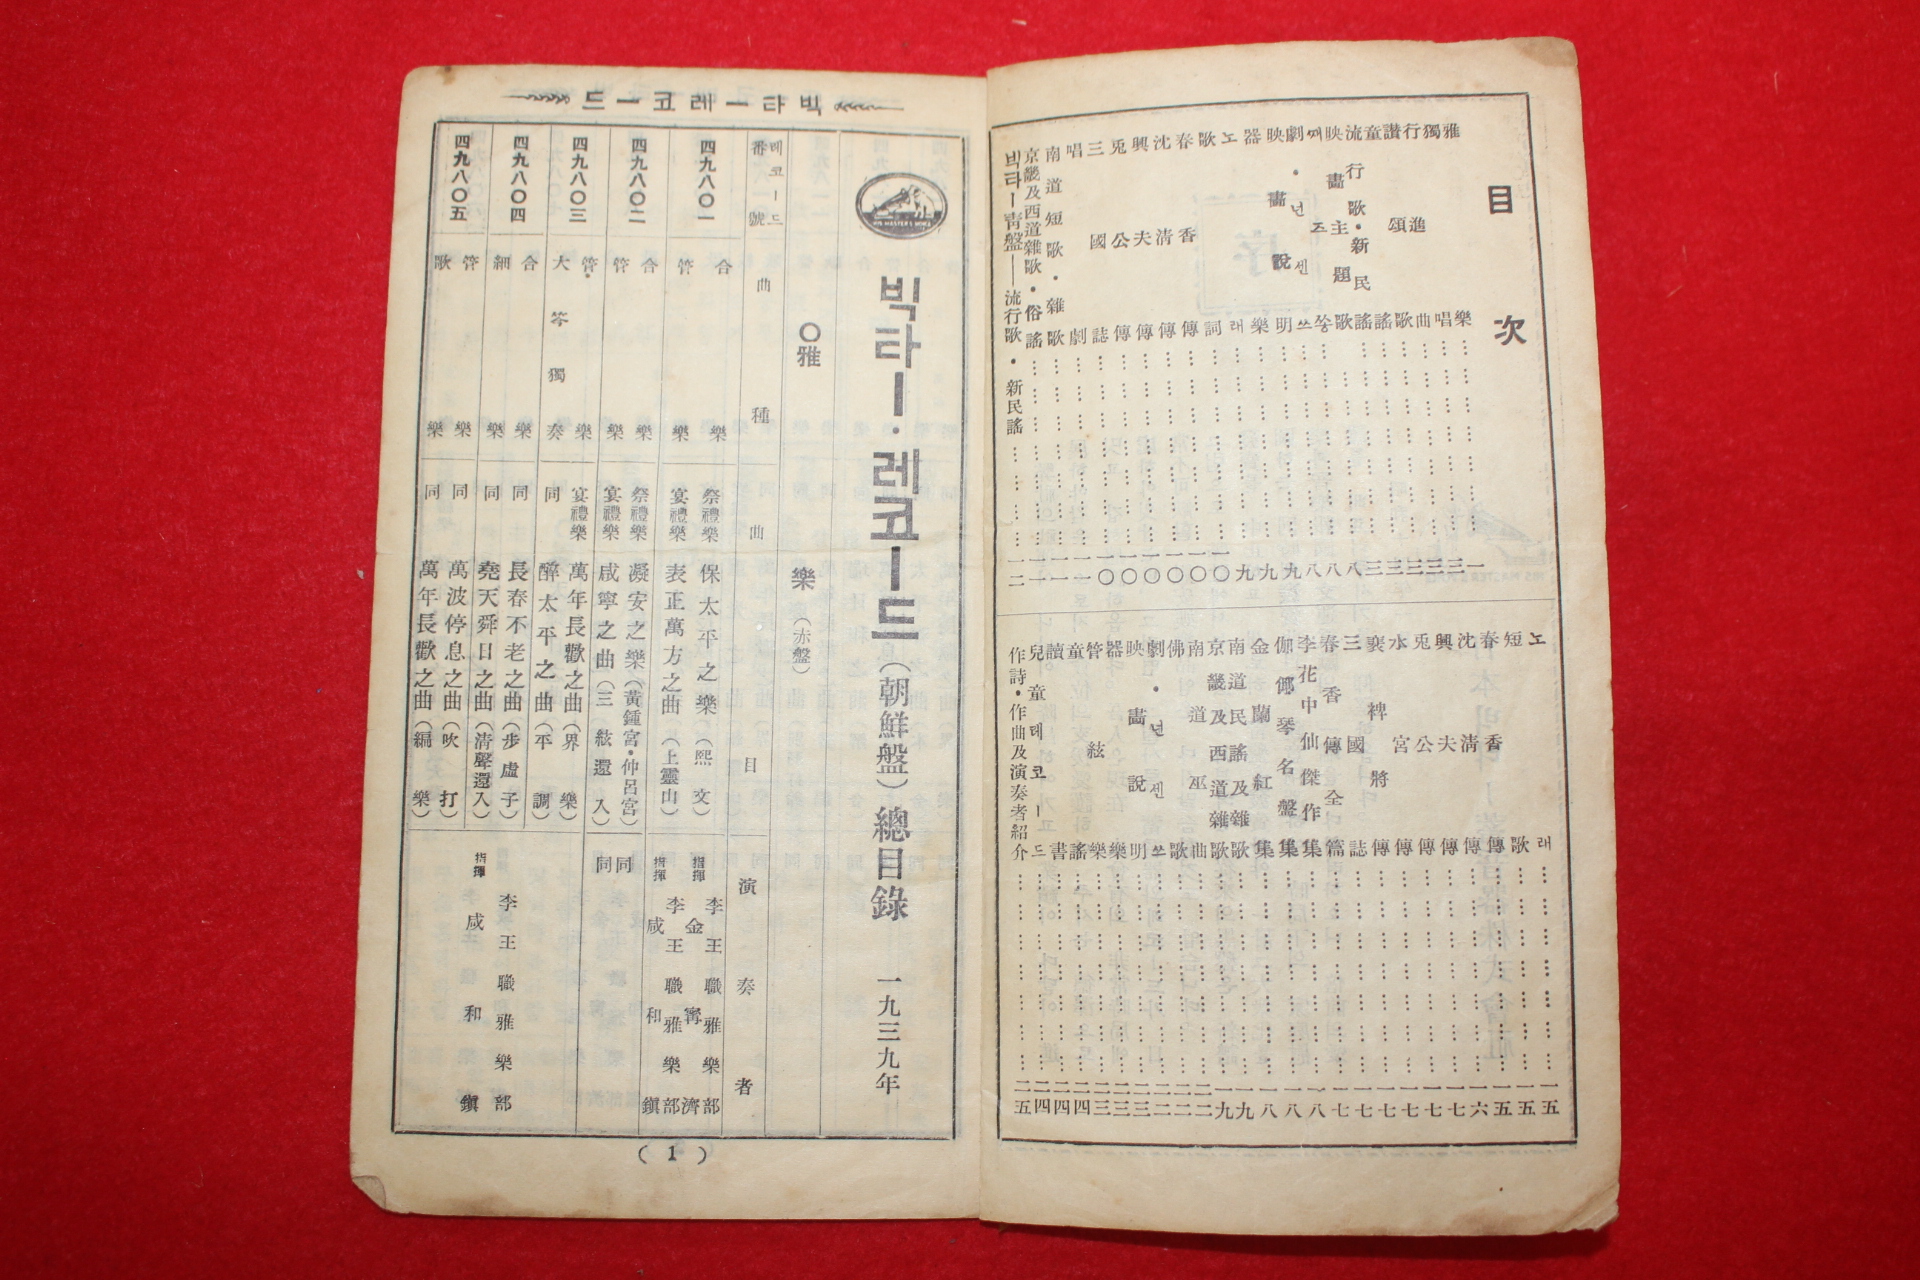 目次
雅樂……………… 一
獨唱……………… 三
行進曲……………… 三
讚頌歌……………… 三
童謠……………… 三
流行歌・新民謠……………… 三
映畵主題歌……………… 八
째즈쏭……………… 八
劇・넌센쓰……………… 八
映畵說明……………… 九
器樂……………… 九
노래……………… 九
歌詞……………… 一〇
春香傳……………… 一〇
沈清傳……………… 一〇
興夫傳……………… 一〇
兎公傳……………… 一〇
三國誌……………… 一〇
唱劇……………… 一一
南道短歌・雜歌……………… 一一
京畿及西道雜歌・俗謠……………… 一一
빅타ー靑盤——流行歌・新民謠……………… 一二
노래……………… 一五
短歌……………… 一五
春香傳……………… 一五
沈清傳……………… 一六
興夫傳……………… 一七
兎公傳……………… 一七
水宮傳……………… 一七
裵裨將傳……………… 一七
三國誌……………… 一七
春香傳全篇……………… 一七
李花中仙傑作集……………… 一八
伽倻琴名盤集……………… 一八
金蘭紅集……………… 一八
南道民謠及雜歌……………… 一九
京畿及西道雜歌……………… 一九
南道巫曲……………… 二二
佛歌……………… 二二
劇・넌센쓰……………… 二二
映畵說明……………… 二三
器樂……………… 二三
管絃樂……………… 二三
童謠……………… 二四
讀書……………… 二四
兒童레코ード……………… 二四
作詩・作曲及演奏者紹介……………… 二五
빅타ー레코ード
HIS MASTER'S VOICE
빅타ー・레코ード(朝鮮盤)總目錄 一九三九年
〇雅樂(赤盤)
레코ード番號 曲種 曲目 演奏者
四九八〇一 合樂 祭禮樂 保太平之樂(熙文) 李王職雅樂部 指揮 金甯濟
管樂 宴禮樂 表正萬方之曲(上靈山) 李王職雅樂部 指揮 咸和鎭
四九八〇二 合樂 祭禮樂 凝安之樂(黃鍾宮・仲呂宮) 同
管樂 宴禮樂 咸寧之曲(三絃還入) 同
四九八〇三 管樂 宴禮樂 萬年長歡之曲(界樂)
大笒獨奏 同 醉太平之曲(平調)
四九八〇四 合樂 同 長春不老之曲(步虛子) 李王職雅樂部
細樂 同 堯天舜日之曲(清聲還入) 指揮 咸和鎭
四九八〇五 管樂 同 萬波停息之曲(吹打)
歌樂 同 萬年長歡之曲(編樂)
(1)